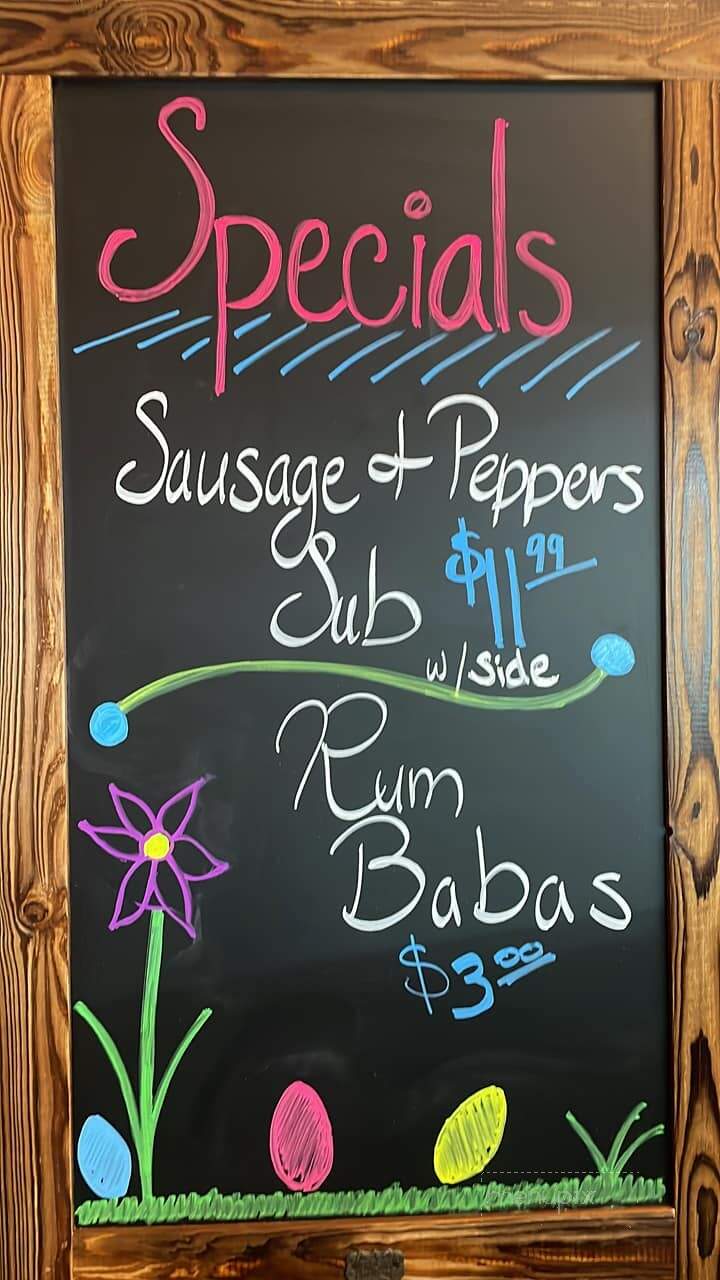 Specials
Sausage & Peppers
Sub $11.99
w/side
Rum
Babas
$3.00
menupix